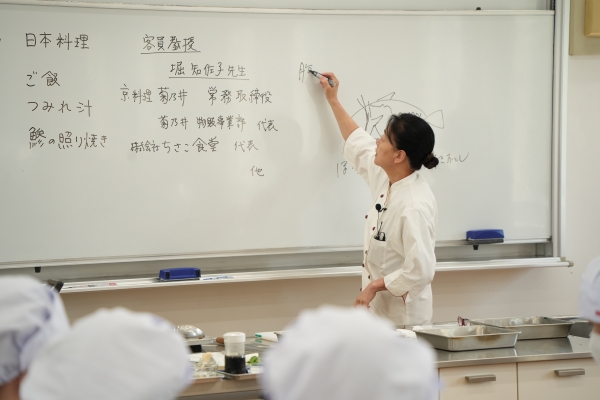 日本料理
ご飯
つみれ汁
鯵の照り焼き
客員教授
堀知佐子先生
京料理 菊乃井 常務取締役
菊乃井 物販事業部 代表
株式会社ちさこ食堂 代表
他